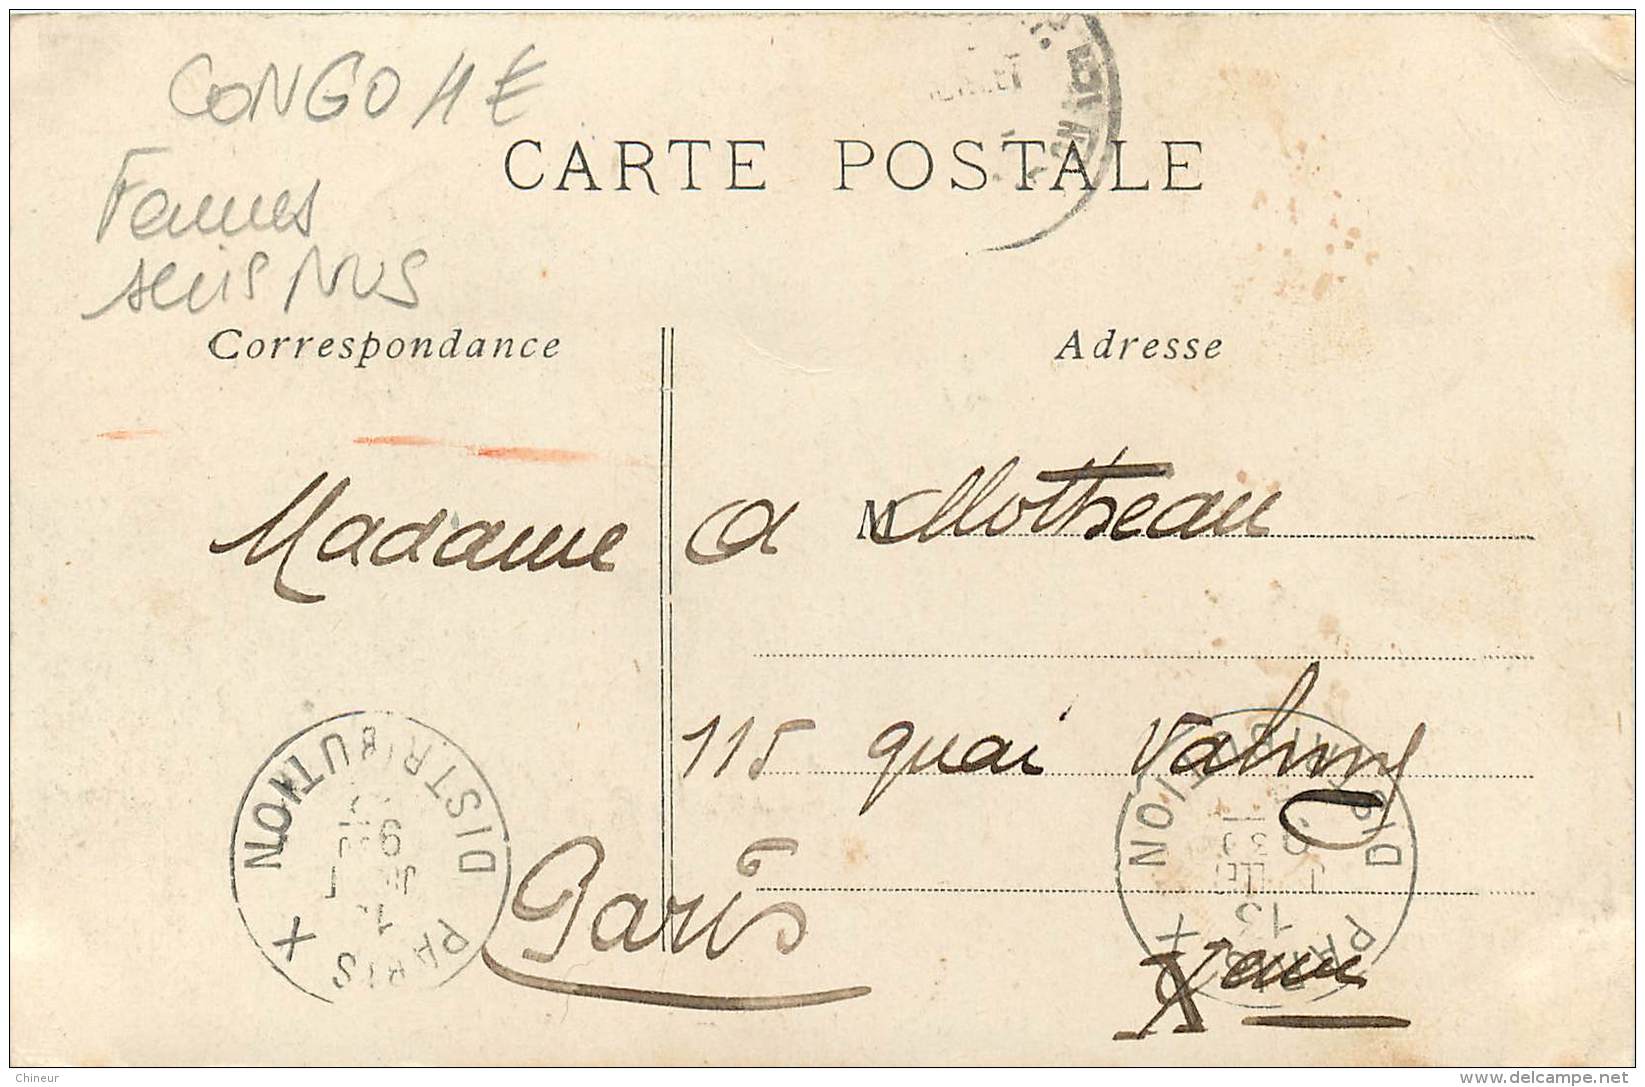 CONGO
Femmes
seins NUS
CARTE POSTALE
Correspondance
Adresse
Madame A M Motheau
115 quai Valmy
Paris
Xeme
DISTRIBUTION
PARIS X
DISTRIBUTION
13
PARIS X
Chineur
delcampe.net